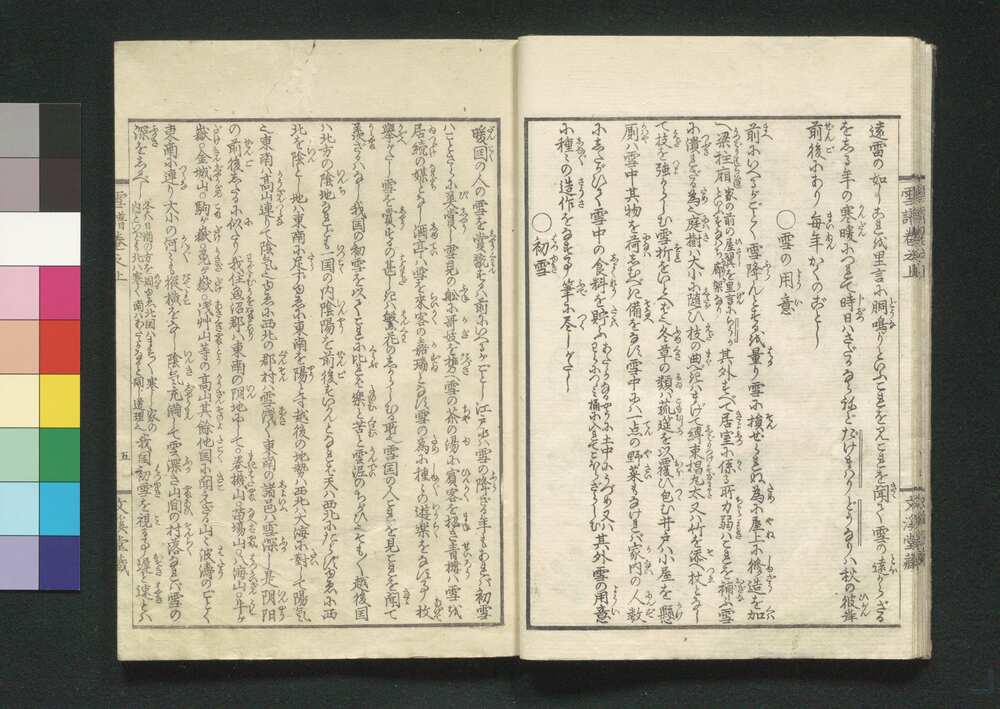 遠雷の如しこれを里言に胴鳴りといふこれを見これを聞て雪の遠からざる
をしる年の寒暖につれて時日はさだかならねどたけまはり・どうなりは秋の彼岸
前後にあり毎年かくのごとし
○雪の用意
前にいへるがごとく雪降んとするを量り雪に損ぜられぬ為に屋上に修造を加
へ梁柱廂家の前の屋翼を里言にらうかといふすなはち廊架なり其外すべて居室に係る所力弱はこれを補ふ雪
に潰れざる為也庭樹は大小に随ひ枝の曲べきはまげて縛束椙丸太又は竹を添へ杖となし
て枝を強からしむ雪折をいとへば也冬草の類は菰筵を以覆ひ包む井戸は小屋を懸
厠は雪中其物を荷しむべき備をなす雪中には一点の野菜もなければ家内の人数
にしたがひて雪中の食料を貯ふあたゝかなるやうに土中にうづめ又はわらにつゝみ桶に入れてこほらざらしむ其外雪の用意
に種々の造作をなす事筆に尽しがたし
○初雪
暖国の人の雪を賞翫するは前にいへるがごとし江戸には雪の降ざる年もあれば初雪
はことさらに美賞し雪見の船に哥妓を携へ雪の茶の湯に賓客を招き青楼は雪を
居続の媒となし酒亭は雪を来客の嘉瑞となす雪の為に種々の遊楽をなす事枚
挙がたし雪を賞するの甚しきは繁花のしからしむる所也雪国の人これを見これを聞て
羨ざるはなし我国の初雪を以てこれに比れば楽と苦と雲泥のちがひ也そも〳〵越後国
は北方の陰地なれども一国の内陰陽を前後すいかんとなれば天は西北にたらずゆゑに西
北を陰とし地は東南に足ずゆゑに東南を陽とす越後の地勢は西北は大海に対して陽気
也東南は高山連りて陰気也ゆゑに西北の郡村は雪浅く東南の諸邑は雪深し是陰陽
の前後したるに似たり我住魚沼郡は東南の陰地にして○巻機山○苗場山○八海山○牛が
嶽○金城山○駒が嶽○兎が嶽○浅艸山等の高山其余他国に聞えざる山々波濤のごとく
東南に連り大小の河々も縦横をなし陰気充満して雪深き山間の村落なれば雪の
深をしるべし冬は日南の方を周ゆゑ北国はます〳〵寒し家の内といへども北は寒く南はあたゝかなると同じ道理也我国初雪を視る事遅と速とは
雪譜巻之上 五 文渓堂蔵